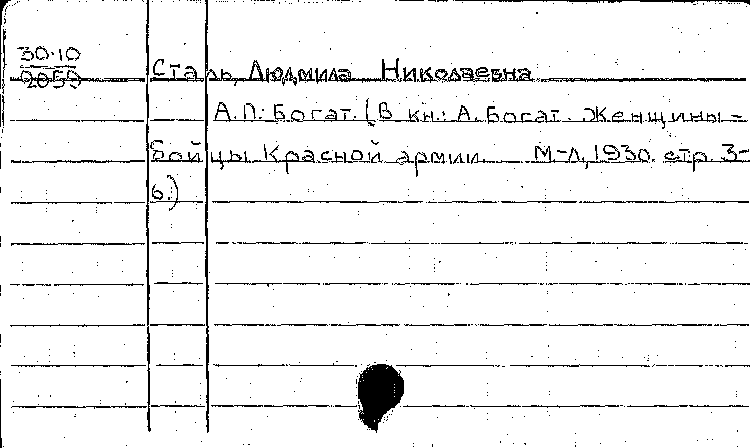 30.10
2059
Сталь, Людмила Николаевна
А.П: Богат. (В кн.: А. Богат. Женщины -
бойцы Красной армии. М-Л, 1930. стр. 3-
6.)